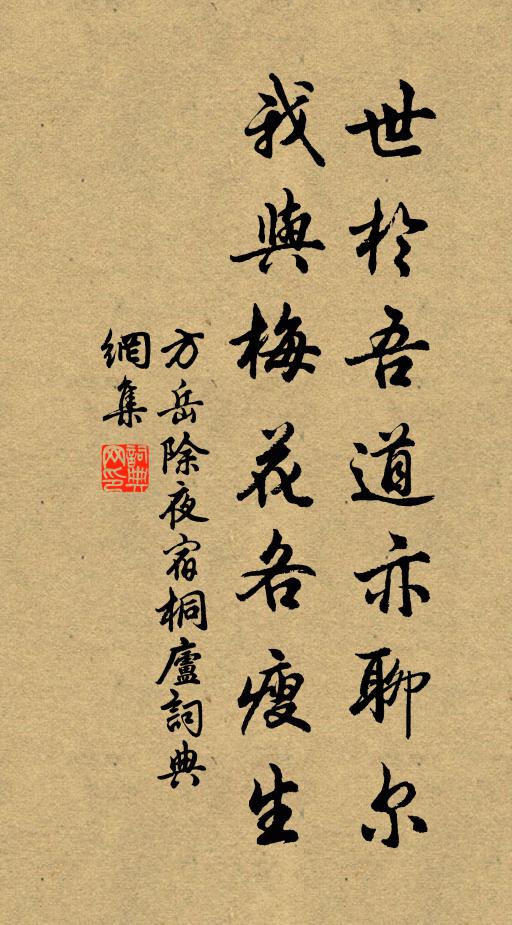 世於吾道亦聊尔
我與梅花各瘦生
方岳除夜宿桐廬詞典
網集
詞典
网印